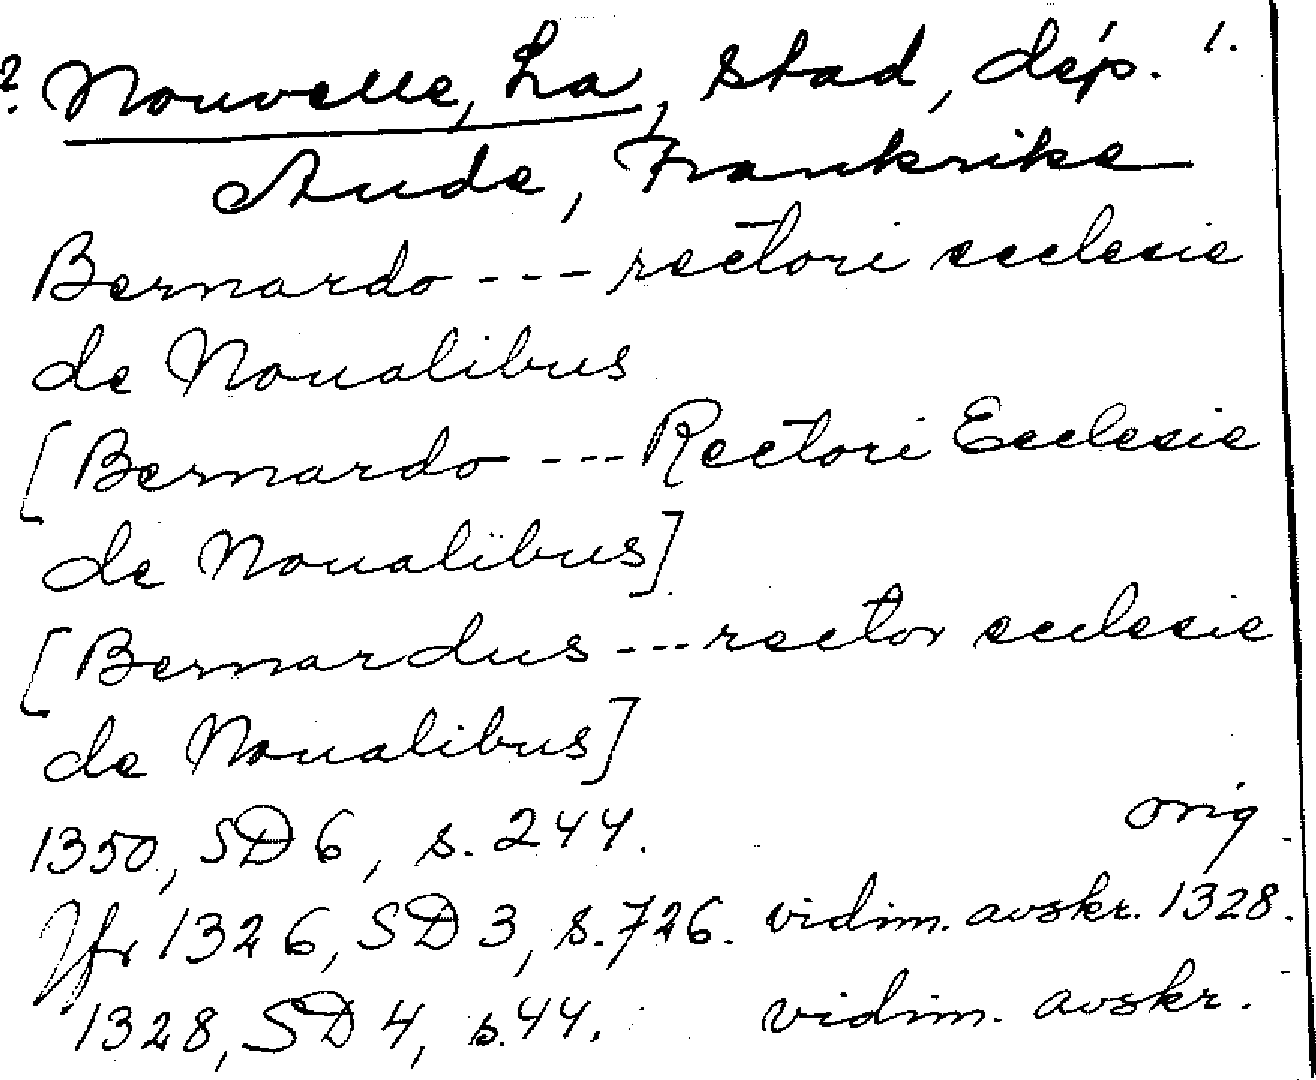 ? Nouvelle, La, stad, dép. 1.
Aude, Frankrike
Bernardo --- rectori ecclesie
de Noualibus
[Bernardo --- Rectori Ecclesie
de Noualibus]
[Bernardus --- rector ecclesie
de Noualibus]
1350, SD 6, s. 244. orig.
Jfr 1326, SD 3, s. 726. vidim. avskr. 1328.
1328, SD 4, s. 44. vidim. avskr.